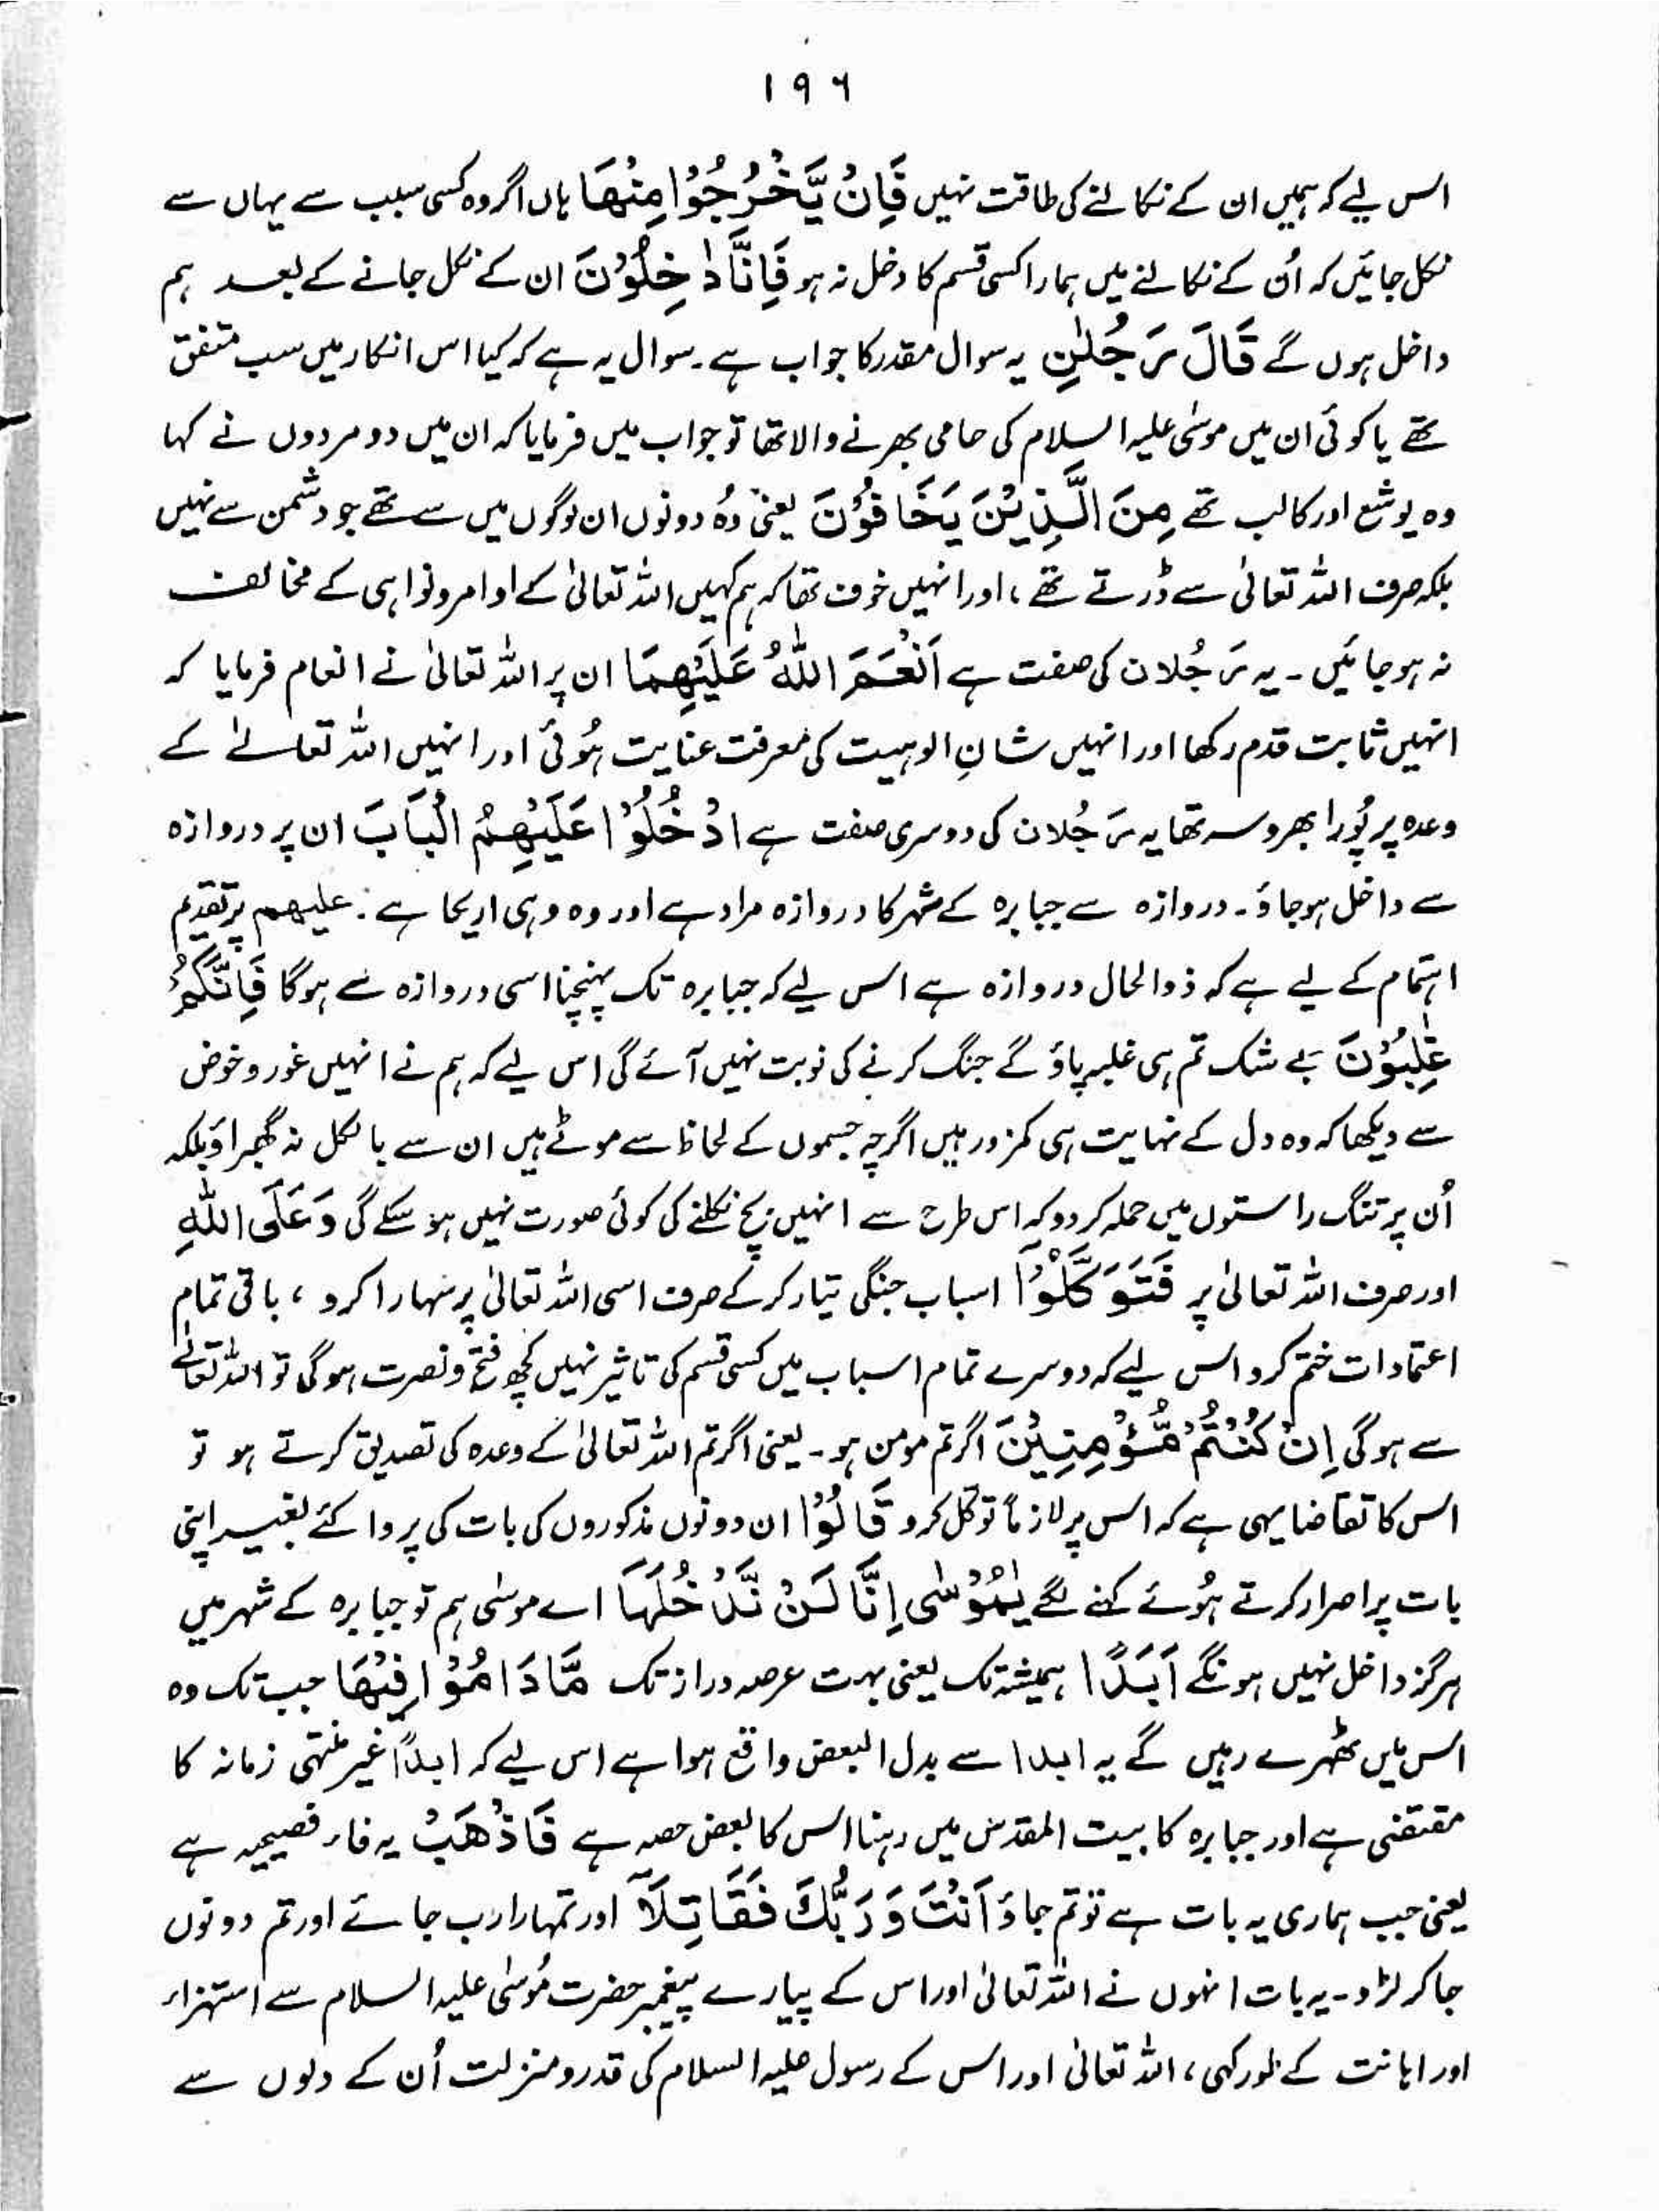 ۱۹۶
اس لیے کہ ہمیں ان کے نکالنے کی طاقت نہیں فَاِنْ یَّخْرُجُوْا مِنْهَا ہاں اگر وہ کسی سبب سے یہاں سے
نکل جائیں کہ اُن کے نکالنے میں ہمارا کسی قسم کا دخل نہ ہو فَاِنَّا دٰخِلُوْنَ ان کے نکل جانے کے بعد ہم
داخل ہوں گے قَالَ رَجُلٰنِ یہ سوال مقدر کا جواب ہے۔ سوال یہ ہے کہ کیا اس انکار میں سب متفق
تھے یا کوئی ان میں موسٰی علیہ السلام کی حامی بھرنے والا تھا تو جواب میں فرمایا کہ ان میں دو مردوں نے کہا
وہ یوشع اور کالب تھے مِنَ الَّذِیْنَ یَخَافُوْنَ یعنی وُہ دونوں ان لوگوں میں سے تھے جو دشمن سے نہیں
بلکہ صرف اللہ تعالیٰ سے ڈرتے تھے، اور انہیں خوف تھا کہ ہم کہیں اللہ تعالیٰ کے اوامر و نواہی کے مخالف
نہ ہو جائیں ۔ یہ رَجُلان کی صفت ہے اَنْعَمَ اللّٰهُ عَلَیْهِمَا ان پر اللہ تعالیٰ نے انعام فرمایا کہ
انہیں ثابت قدم رکھا اور انہیں شانِ الوہیت کی معرفت عنایت ہُوئی اور انہیں اللہ تعالیٰ کے
وعدہ پر پُورا بھروسہ تھا یہ رَجُلان کی دوسری صفت ہے ادْخُلُوْا عَلَیْهِمُ الْبَابَ ان پر دروازہ
سے داخل ہو جاؤ۔ دروازہ سے جبابرہ کے شہر کا دروازہ مراد ہے اور وہ وہی اریحا ہے: علیھم پر تقدیم
اہتمام کے لیے ہے کہ ذوالحال دروازہ ہے اس لیے کہ جبابرہ تک پہنچنا اسی دروازہ سے ہوگا فَاِنَّكُمْ
غٰلِبُوْنَ بے شک تم ہی غلبہ پاؤ گے جنگ کرنے کی نوبت نہیں آئے گی اس لیے کہ ہم نے انہیں غور و خوض
سے دیکھا کہ وہ دل کے نہایت ہی کمزور ہیں اگرچہ جسموں کے لحاظ سے موٹے ہیں ان سے بالکل نہ گھبراؤ بلکہ
اُن پر تنگ راستوں میں حملہ کر دو کہ اس طرح سے انہیں بچ نکلنے کی کوئی صورت نہیں ہو سکے گی وَعَلَی اللّٰهِ
اور صرف اللہ تعالیٰ پر فَتَوَكَّلُوْٓا اسباب جنگی تیار کر کے صرف اسی اللہ تعالیٰ پر سہارا کرو ، باقی تمام
اعتمادات ختم کرو اس لیے کہ دوسرے تمام اسباب میں کسی قسم کی تاثیر نہیں کچھ فتح و نصرت ہوگی تو اللہ تعالےٰ
سے ہوگی اِنْ كُنْتُمْ مُّؤْمِنِیْنَ اگر تم مومن ہو ۔ یعنی اگر تم اللہ تعالیٰ کے وعدہ کی تصدیق کرتے ہو تو
اس کا تقاضا یہی ہے کہ اس پر لازماً توکل کرو قَالُوْا ان دونوں مذکوروں کی بات کی پروا کئے بغیر اپنی
بات پر اصرار کرتے ہُوئے کہنے لگے یٰمُوْسٰٓی اِنَّا لَنْ نَّدْخُلَهَآ اے موسٰی ہم تو جبابرہ کے شہر میں
ہرگز داخل نہیں ہونگے اَبَدًا ہمیشہ تک یعنی بہت عرصہ دراز تک مَّا دَامُوْا فِیْهَا جب تک وہ
اس میں ٹھہرے رہیں گے یہ ابدا سے بدل البعض واقع ہوا ہے اس لیے کہ ابداً غیر منتہی زمانہ کا
مقتضی ہے اور جبابرہ کا بیت المقدس میں رہنا اس کا بعض حصہ ہے فَاذْهَبْ یہ فاء فصیحیہ ہے
یعنی جب ہماری یہ بات ہے تو تم جاؤ اَنْتَ وَرَبُّكَ فَقَاتِلَآ اور تمہارا رب جائے اور تم دونوں
جا کر لڑو ۔ یہ بات انہوں نے اللہ تعالیٰ اور اس کے پیارے پیغمبر حضرت مُوسٰی علیہ السلام سے استہزاء
اور اہانت کے طور کہی ، اللہ تعالیٰ اور اس کے رسول علیہ السلام کی قدر و منزلت اُن کے دلوں سے